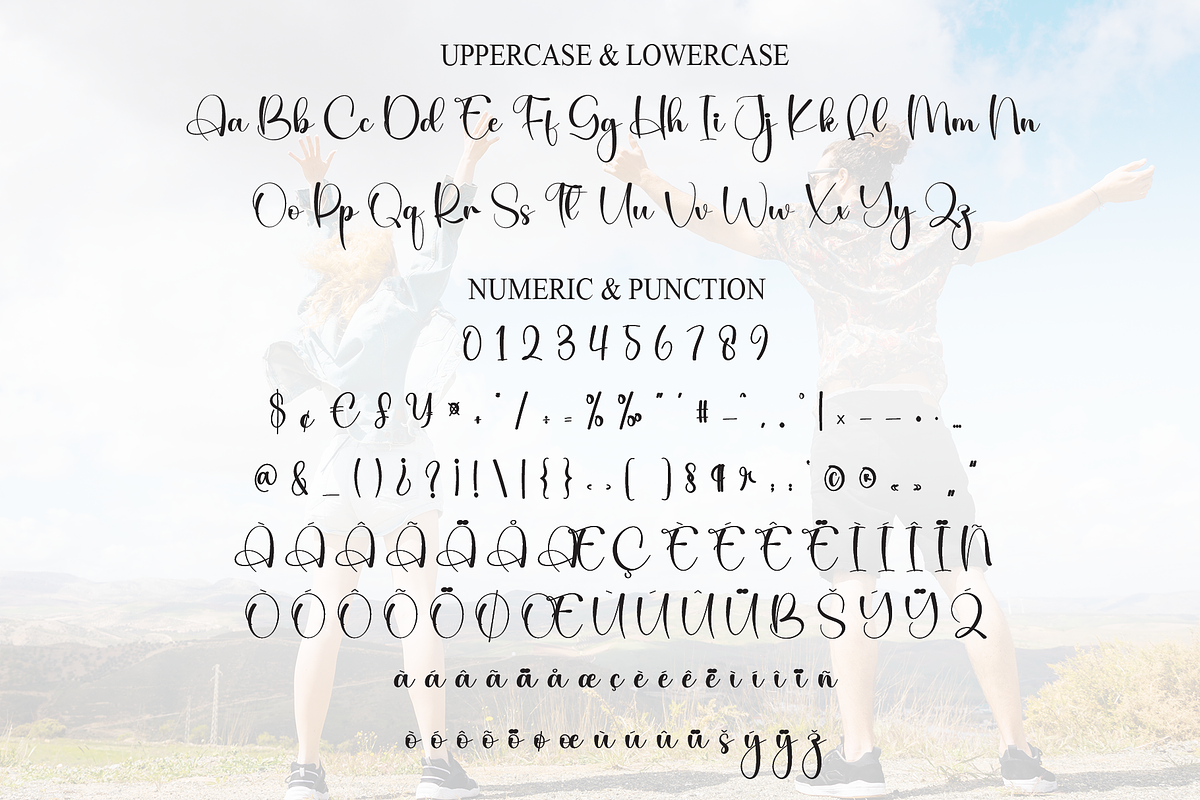 UPPERCASE & LOWERCASE
Aa Bb Cc Dd Ee Ff Gg Hh Ii Jj Kk Ll Mm Nn
Oo Pp Qq Rr Ss Tt Uu Vv Ww Xx Yy Zz
NUMERIC & PUNCTION
0 1 2 3 4 5 6 7 8 9
$ ¢ € £ ¥ ¤ + / ÷ = % ‰ " ' # ¯ ˆ , . ° | × – — • · …
@ & _ ( ) ¿ ? ¡ ! \ | { } ‹ › [ ] § ¶ ; : ‘ © ® « » „ “
À Á Â Ã Ä Å Æ Ç È É Ê Ë Ì Í Î Ï Ñ
Ò Ó Ô Õ Ö Ø Œ Ù Ú Û Ü B Š Ý Ÿ Ž
à á â ã ä å æ ç è é ê ë ì í î ï ñ
ò ó ô õ ö ø œ ù ú û ü š ý ÿ ž